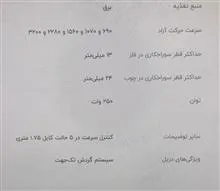 منبع تغذیه برق
سرعت حرکت آزاد ۶۹۰ و ۱۰۷۰ و ۱۵۶۰ و ۲۲۸۰ و ۳۲۰۰
حداکثر قطر سوراخکاری در فلز ۱۳ میلی‌متر
حداکثر قطر سوراخکاری در چوب ۲۴ میلی‌متر
توان ۲۵۰ وات
سایر توضیحات کنترل سرعت در ۵ حالت کابل ۱.۷۵ متری
ویژگی‌های دریل سیستم گردش تک‌جهت